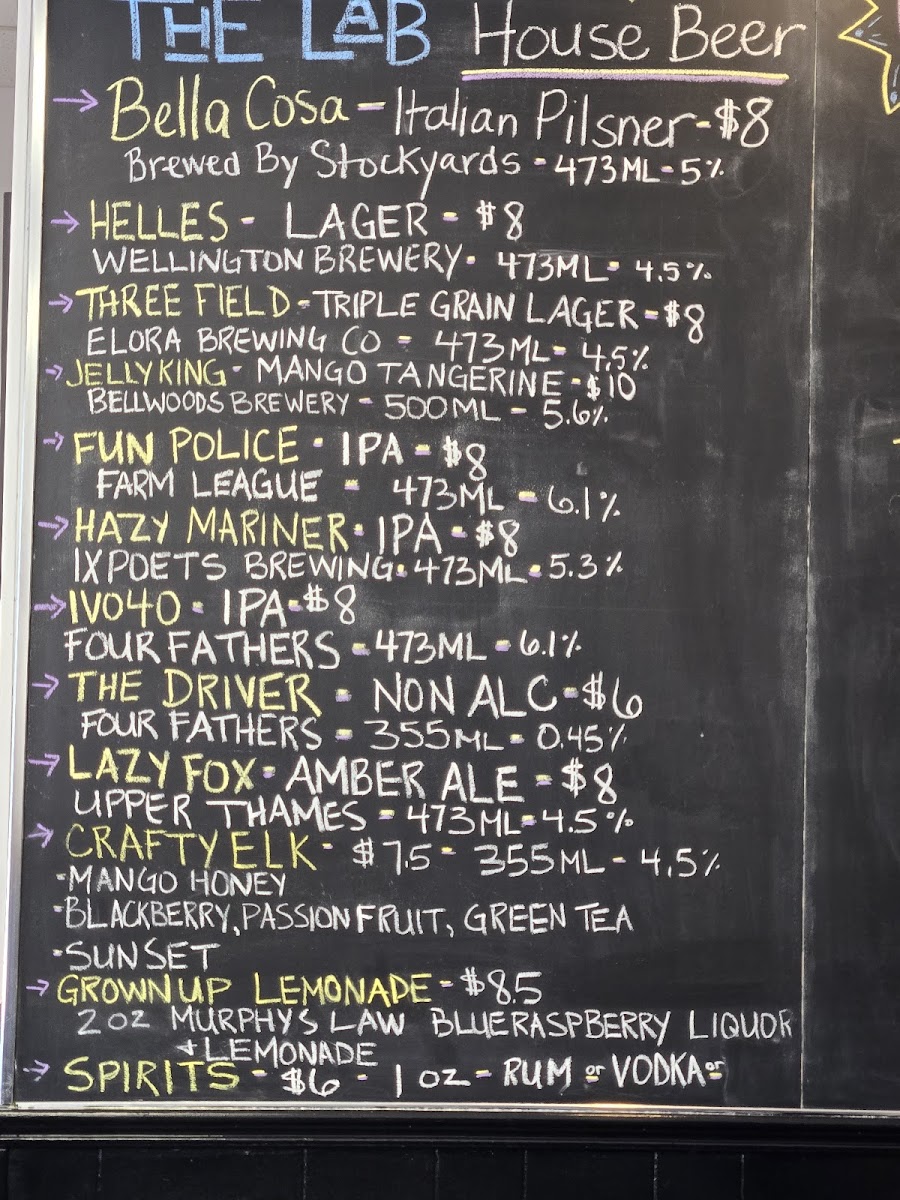 THE LAB House Beer
→ Bella Cosa - Italian Pilsner - $8
Brewed By Stockyards - 473ML - 5%
→ HELLES - LAGER - $8
WELLINGTON BREWERY - 473ML - 4.5%
→ THREE FIELD - TRIPLE GRAIN LAGER - $8
ELORA BREWING CO - 473ML - 4.5%
→ JELLYKING - MANGO TANGERINE - $10
BELLWOODS BREWERY - 500ML - 5.6%
→ FUN POLICE - IPA - $8
FARM LEAGUE - 473ML - 6.1%
→ HAZY MARINER - IPA - $8
IXPOETS BREWING - 473ML - 5.3%
→ IVO40 - IPA - $8
FOUR FATHERS - 473ML - 6.1%
→ THE DRIVER - NON ALC - $6
FOUR FATHERS - 355ML - 0.45%
→ LAZY FOX - AMBER ALE - $8
UPPER THAMES - 473ML - 4.5%
→ CRAFTY ELK - $7.5 - 355ML - 4.5%
- MANGO HONEY
- BLACKBERRY, PASSION FRUIT, GREEN TEA
- SUNSET
→ GROWNUP LEMONADE - $8.5
2 OZ MURPHYS LAW BLUERASPBERRY LIQUOR
+ LEMONADE
→ SPIRITS - $6 - 1 OZ - RUM or VODKA or